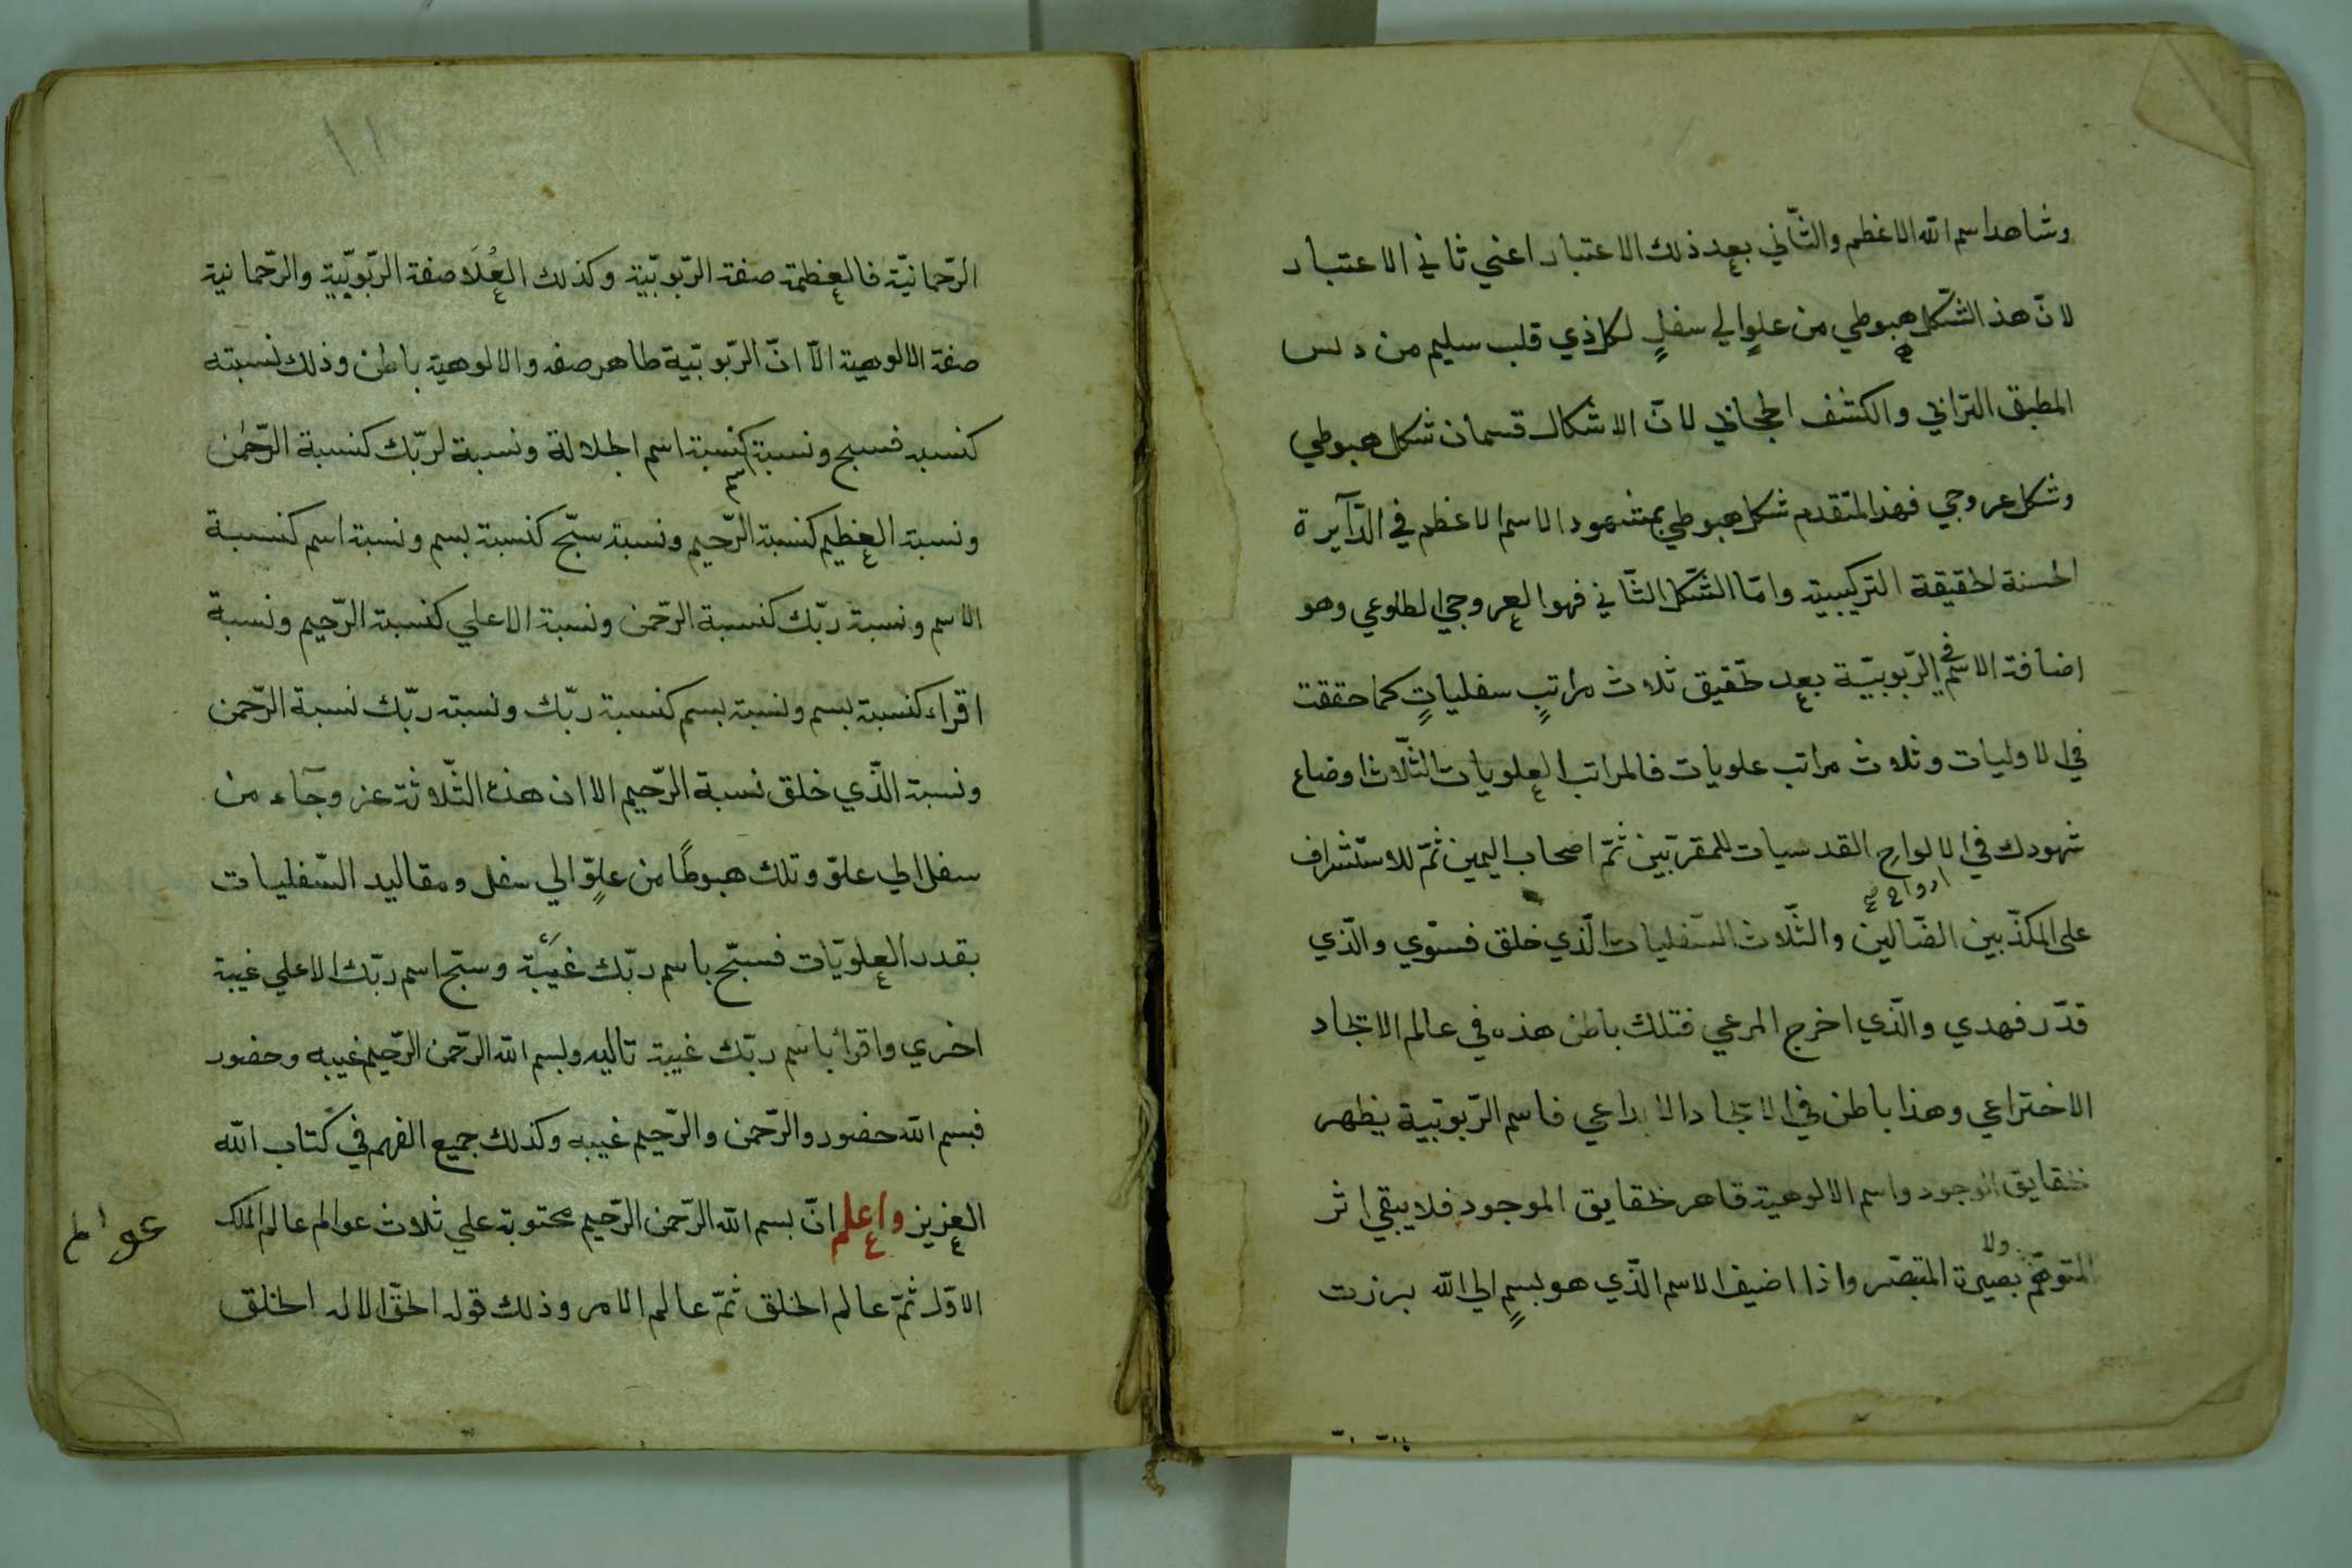 وشاهد اسم الله الاعظم والثّاني بعد ذلك الاعتبار اعني ثاني الاعتبار
لانّ هذ الشّكل هبوطي من علوٍ الي سفلٍ لكل ذي قلب سليم من دنس
المطبق التراني والكشف الحجاني لانّ الاشكال قسمان شكل هبوطي
وشكل عروجي فهذ المتقدم شكل هبوطي بمشهود الاسم الاعظم في الدّآيرة
الحسنة الحقيقة التركيبية وامّا الشّكل الثّاني فهو العروجي الطلوعي وهو
اضافة الاسم في الرّبوبيّة بعد تحقيق ثلاث مراتبٍ سفلياتٍ كما حققت
في الاوليات وثلاث مراتب علويات فالمراتب العلويات الثّلاث اوضاع
شهودك في الالواح القدسيات للمقرّبين ثمّ اصحاب اليمين ثمّ للاستشراف
ارواح
على المكذّبين الضّالين والثّلاث السّفليات الّذي خلق فسوّي والّذي
قدّر فهدي والّذي اخرج المرعي فتلك باطن هذه في عالم الاتحاد
الاختراعي وهذا باطن في الاتحاد الابداعي فاسم الرّبوبيّة يظهر
حقايق الوجود واسم الالوهية قاهر لحقايق الموجود فلا يبقي اثر
ولا
المتوهّم بصيرة المتبصّر واذا اضيف الاسم الّذي هو بسمٍ الي الله برزت
١١
الرّحمانيّة فالعظمة صفة الرّبوبيّة وكذلك العُلَا صفة الرّبوبيّة والرّحمانية
صفة الالوهية الّا انّ الرّبوبيّة ظاهر صفه والالوهية باطن وذلك نسبته
كنسبه فسبح ونسبة اسم كنسبة اسم الجلالة ونسبة لربّك كنسبة الرّحمٰن
ونسبة العظيم كنسبة الرّحيم ونسبة سبّح كنسبة بسم ونسبة اسم كنسبة
الاسم ونسبة ربّك كنسبة الرّحمن ونسبة الاعلي كنسبة الرّحيم ونسبة
اقراء كنسبة بسم ونسبة بسم كنسبة ربّك ونسبة ربّك نسبة الرّحمن
ونسبة الّذي خلق نسبة الرّحيم الا ان هذه الثّلاثة عز وجآء من
سفل الي علوّ وتلك هبوطًا من علوٍّ الي سفل ومقاليد السّفليات
بقدر العلويّات فسبّح باسم ربّك غيبَة وسبّح اسم ربّك الاعلي غيبة
اخري واقرأ باسم ربّك غيبة تاليه وبسم الله الرّحمن الرّحيم غيبه وحضور
فبسم الله حضور والرّحمن والرّحيم غيبه وكذلك جميع الفهم في كتاب الله
العزيز واعلم انّ بسم الله الرّحمن الرّحيم محتوية علي ثلاث عوالم عالم الملك
عوالم
الاوّل ثمّ عالم الخلق ثمّ عالم الامر وذلك قوله الحقّ الا له الخلق